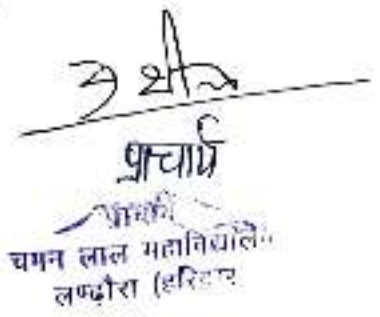 प्राचार्य
प्राचार्य
चमन लाल महाविद्यालय
लण्ढौरा (हरिद्वार